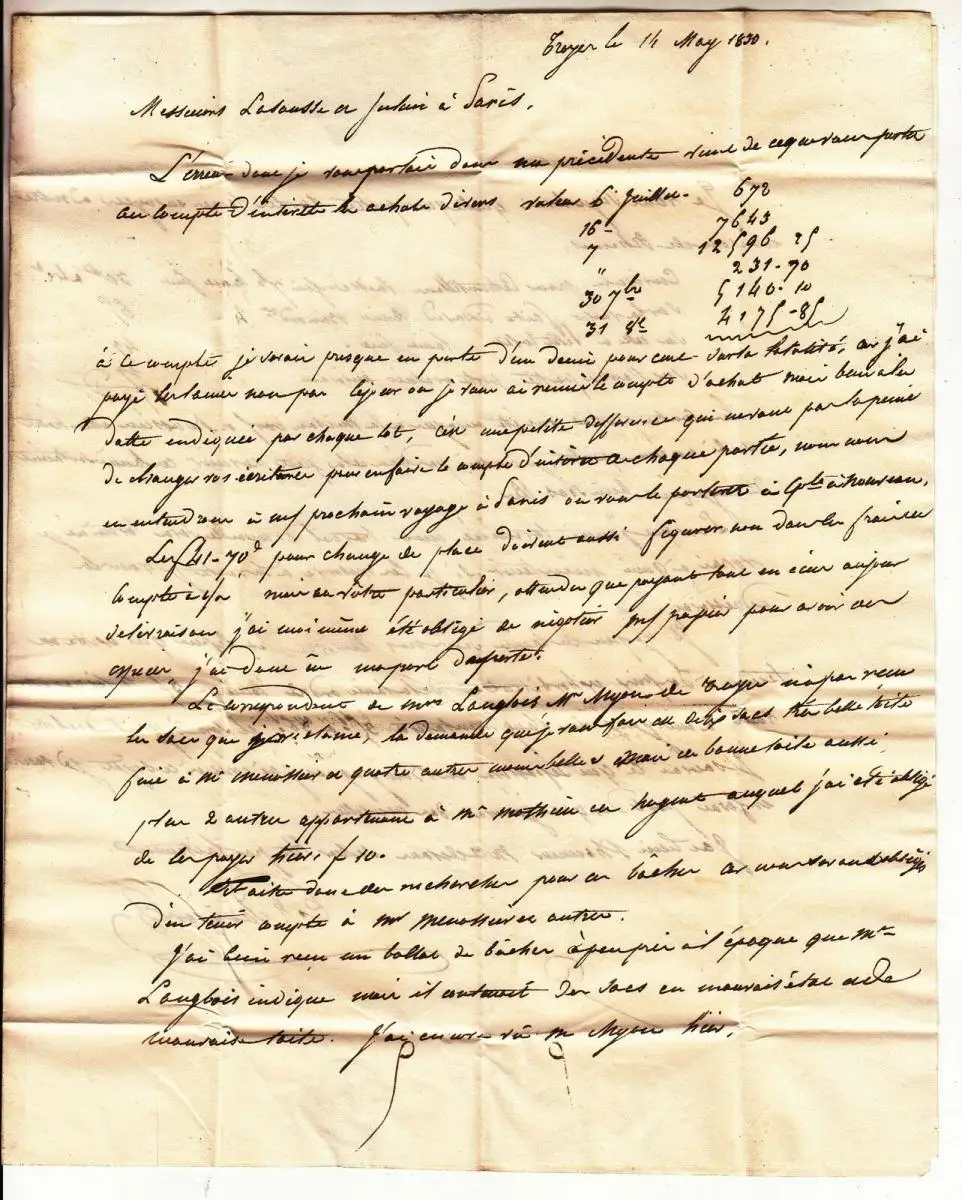 Troyes le 14 May 1830.
Messieurs Lasausse et à Paris.
L'erreur dont je vous parlais dans ma précédente vient de ce que vous portez
au compte d'intérêts les achats divers valeur 6 Juillet. 672
16 - 7643
7 12596 25
" 231-70
30 7bre 5140-10
31 8e 4175-85
à ce compte je serais presque en perte d'un demi pour cent sur la totalité, car j'ai
payé les laines non pas le jour où je vous ai remis le compte d'achat mais bien à la
datte indiquée par chaque lot, c'est une petite différence qui ne vaut pas la peine
de changer vos écritures pour en faire le compte d'intérêt à chaque partie, nous nous
en entendrons à mon prochain voyage à Paris où vous le porterez à Cpte à nouveau.
Les f 41-70 pour change de place doivent aussi figurer non dans les frais du
compte à mais au vôtre particulier, attendu que payant tout en écus au jour
de livraison j'ai moi même été obligé de négocier papier pour avoir des
espèces, j'ai donc eu ma part de perte.
Le correspondant de mrs Langlois Mr Myon de Troyes n'a pas reçu
les sacs que je réclame, la demande que je vous fais est de sacs très belle toile
faite à mr et quatre autres moins belles mais en bonne toile aussi
plus 2 autres appartenant à mr mathieu de nogent auquel j'ai été obligé
de les payer hier, f 10.
Faites donc des recherches pour ces bâches car vous serez obligés
d'en tenir compte à mr et autres.
J'ai bien reçu un ballot de bâches à peu près à l'époque que Mr
Langlois indique mais il contenait des sacs en mauvais état et de
mauvaise toile. J'ai encore vu m Myon hier,